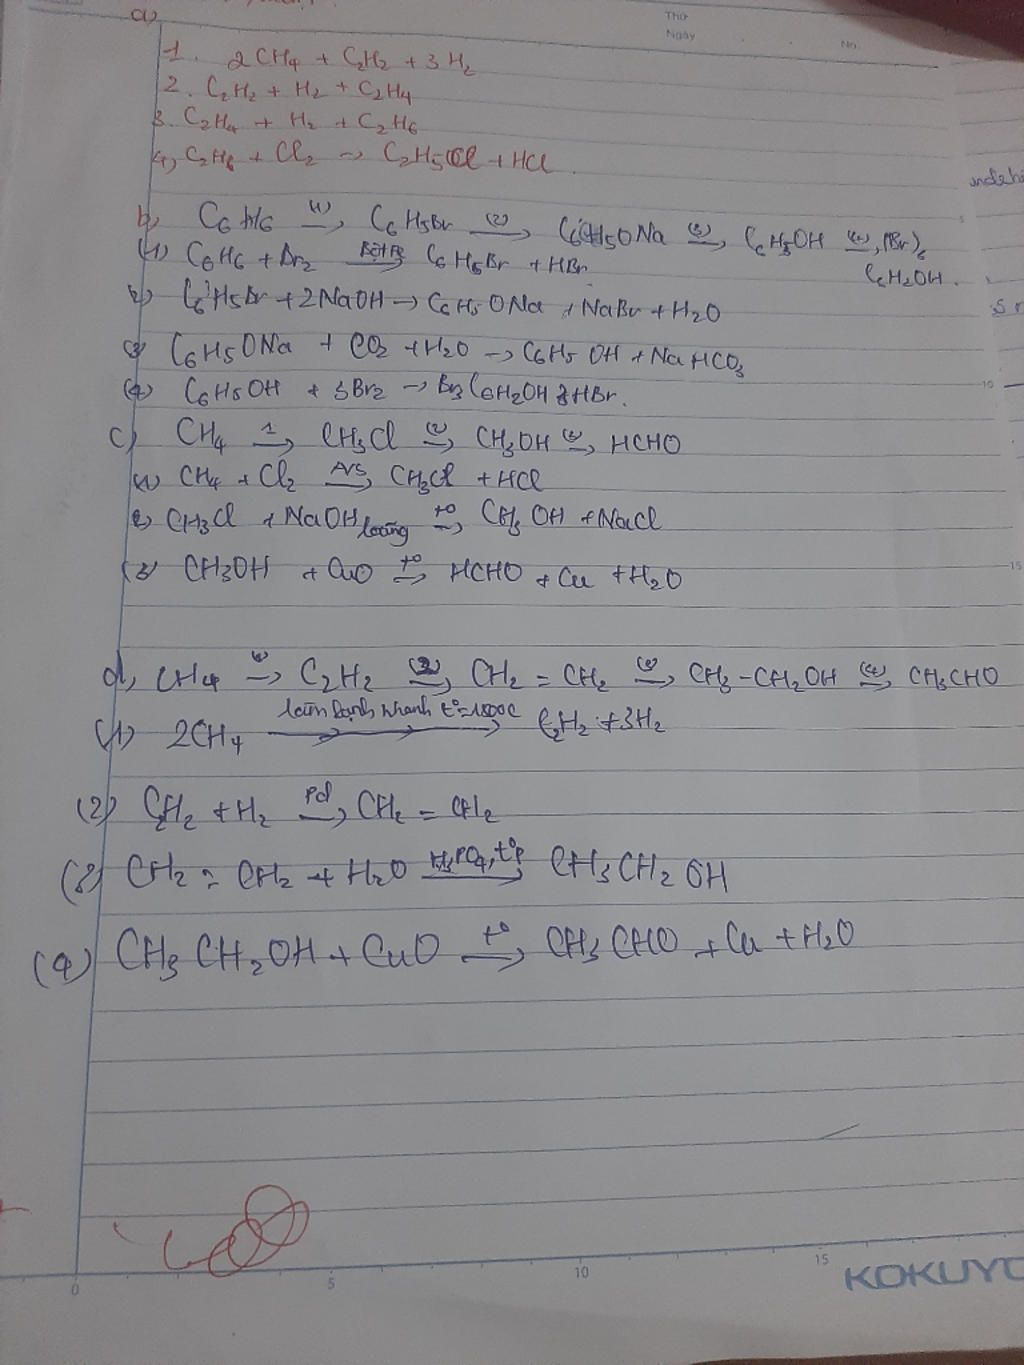 a)
Thứ
Ngày
No.
1. 2CH4 + C2H2 + 3H2
2. C2H2 + H2 + C2H4
3. C2H4 + H2 + C2H6
4, C2H6 + Cl2 → C2H5Cl + HCl
b, C6H6 (1)→ C6H5Br (2)→ C6H5ONa (3)→ C6H5OH (4)→ (Br)3
C6H2OH.
(1) C6H6 + Br2 Bột Fe→ C6H5Br + HBr
2) C6H5Br + 2NaOH → C6H5ONa + NaBr + H2O
(3) C6H5ONa + CO2 + H2O → C6H5OH + NaHCO3
(4) C6H5OH + 3Br2 → Br3C6H2OH 3HBr.
c) CH4 1→ CH3Cl (2)→ CH3OH (3)→ HCHO
(1) CH4 + Cl2 A/S→ CH3Cl + HCl
2) CH3Cl + NaOH loãng t°→ CH3OH + NaCl
(3) CH3OH + CuO t°→ HCHO + Cu + H2O
d, CH4 (1)→ C2H2 (2)→ CH2 = CH2 (3)→ CH3-CH2OH (4)→ CH3CHO
(1) 2CH4 làm lạnh nhanh t°=1500C→ C2H2 + 3H2
(2) C2H2 + H2 Pd→ CH2 = CH2
(3) CH2 = CH2 + H2O H3PO4, t°p→ CH3CH2OH
(4) CH3CH2OH + CuO t°→ CH3CHO + Cu + H2O
5
10
15
0 5 10 15
KOKUYO